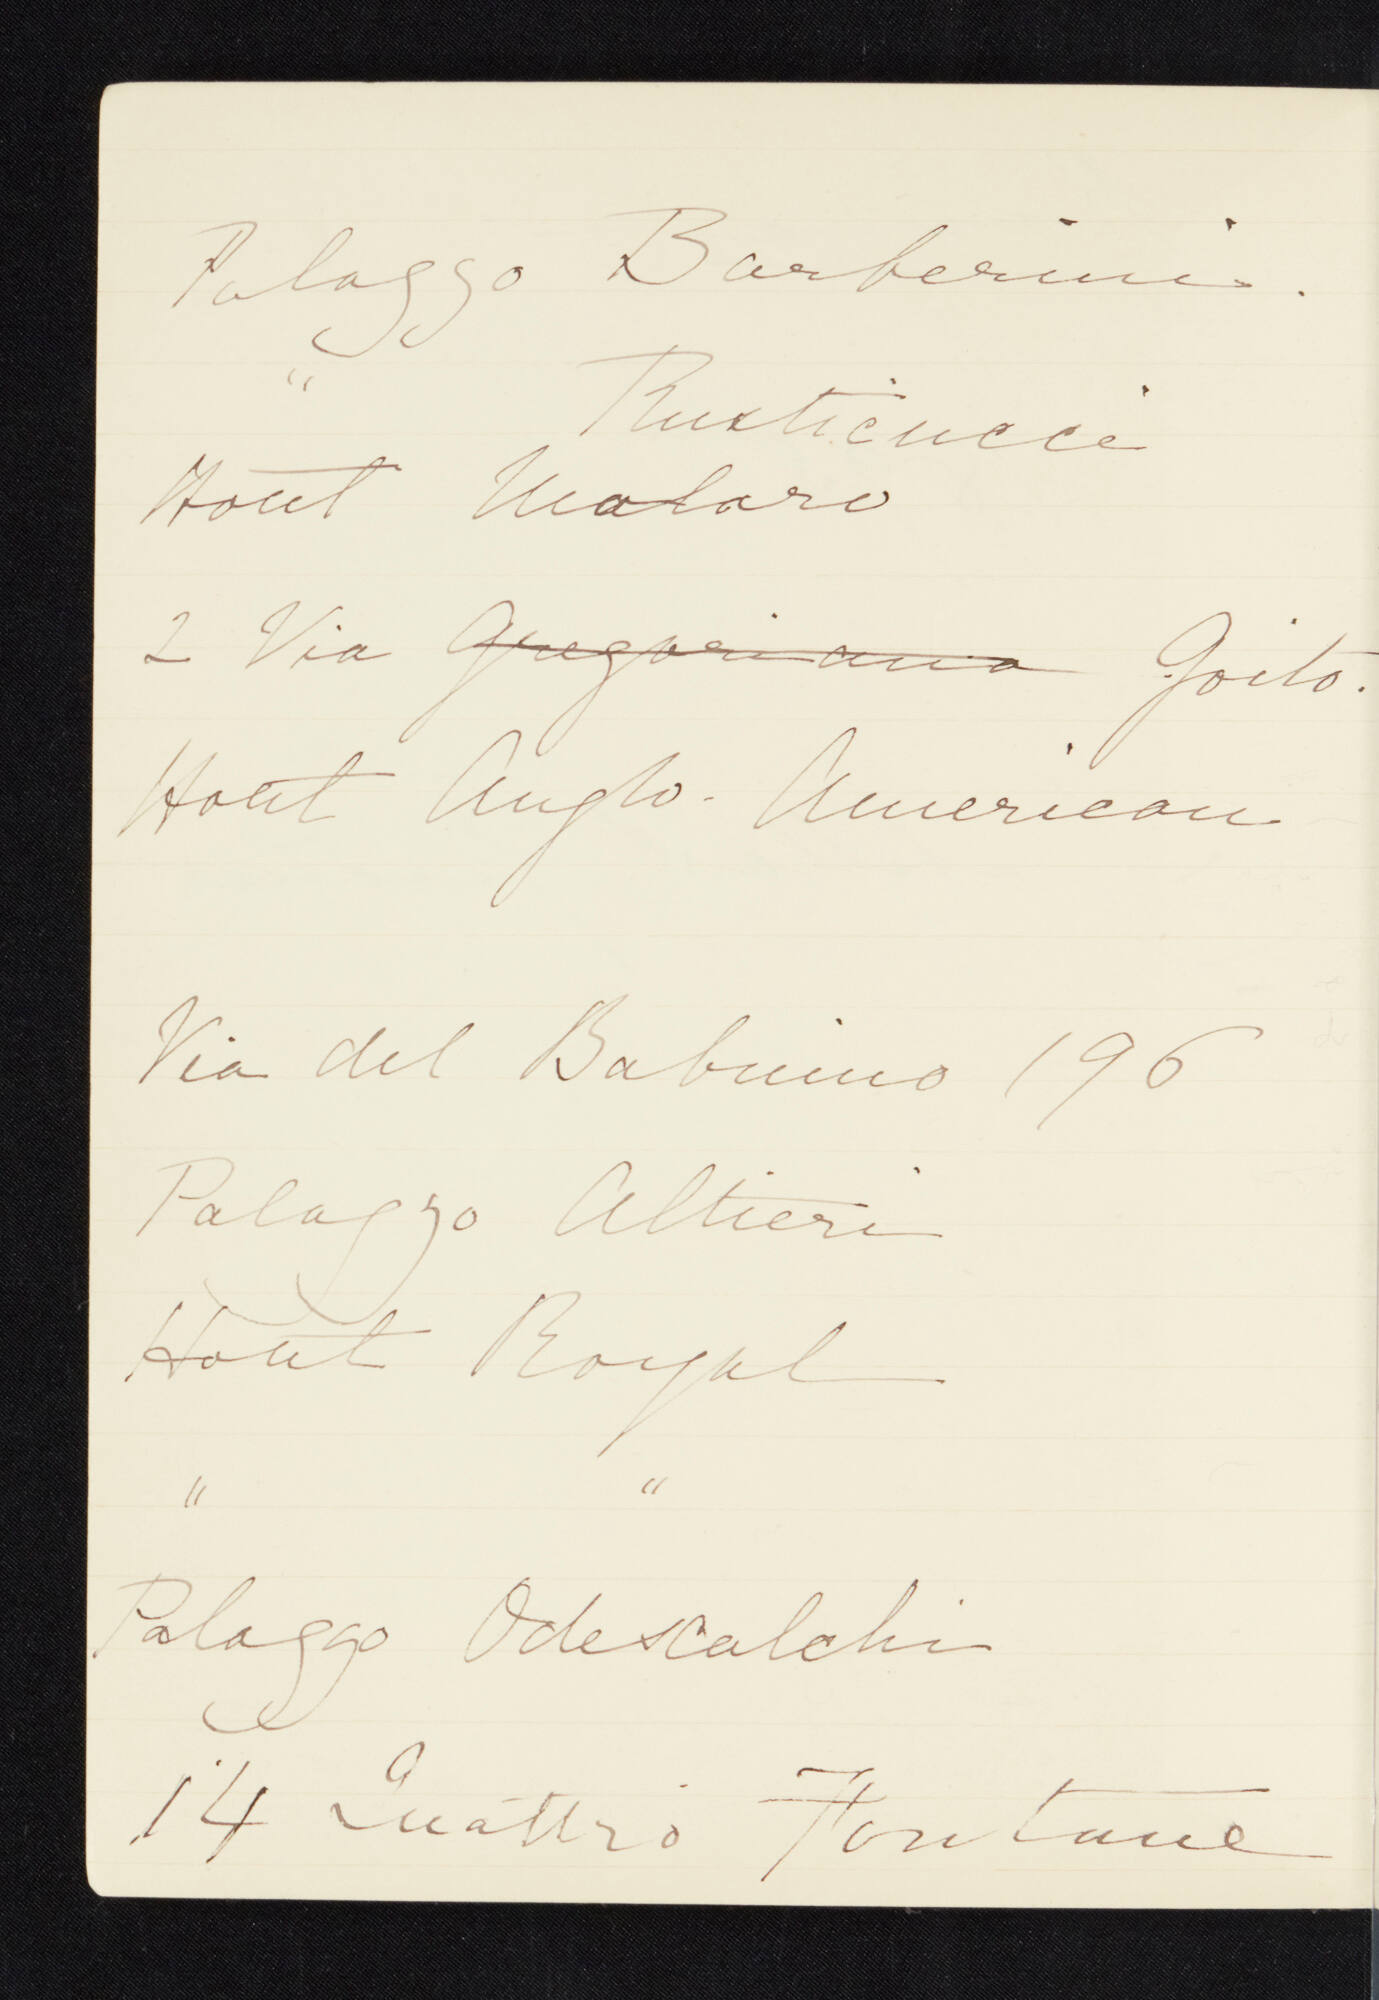 Palazzo Barberini.
" Rusticucci
Hotel Molaro
2 Via Gregoriana Goito.
Hotel Anglo-American
Via del Babuino 196
Palazzo Altieri
Hotel Royal
" "
Palazzo Odescalchi
14 Quattro Fontane